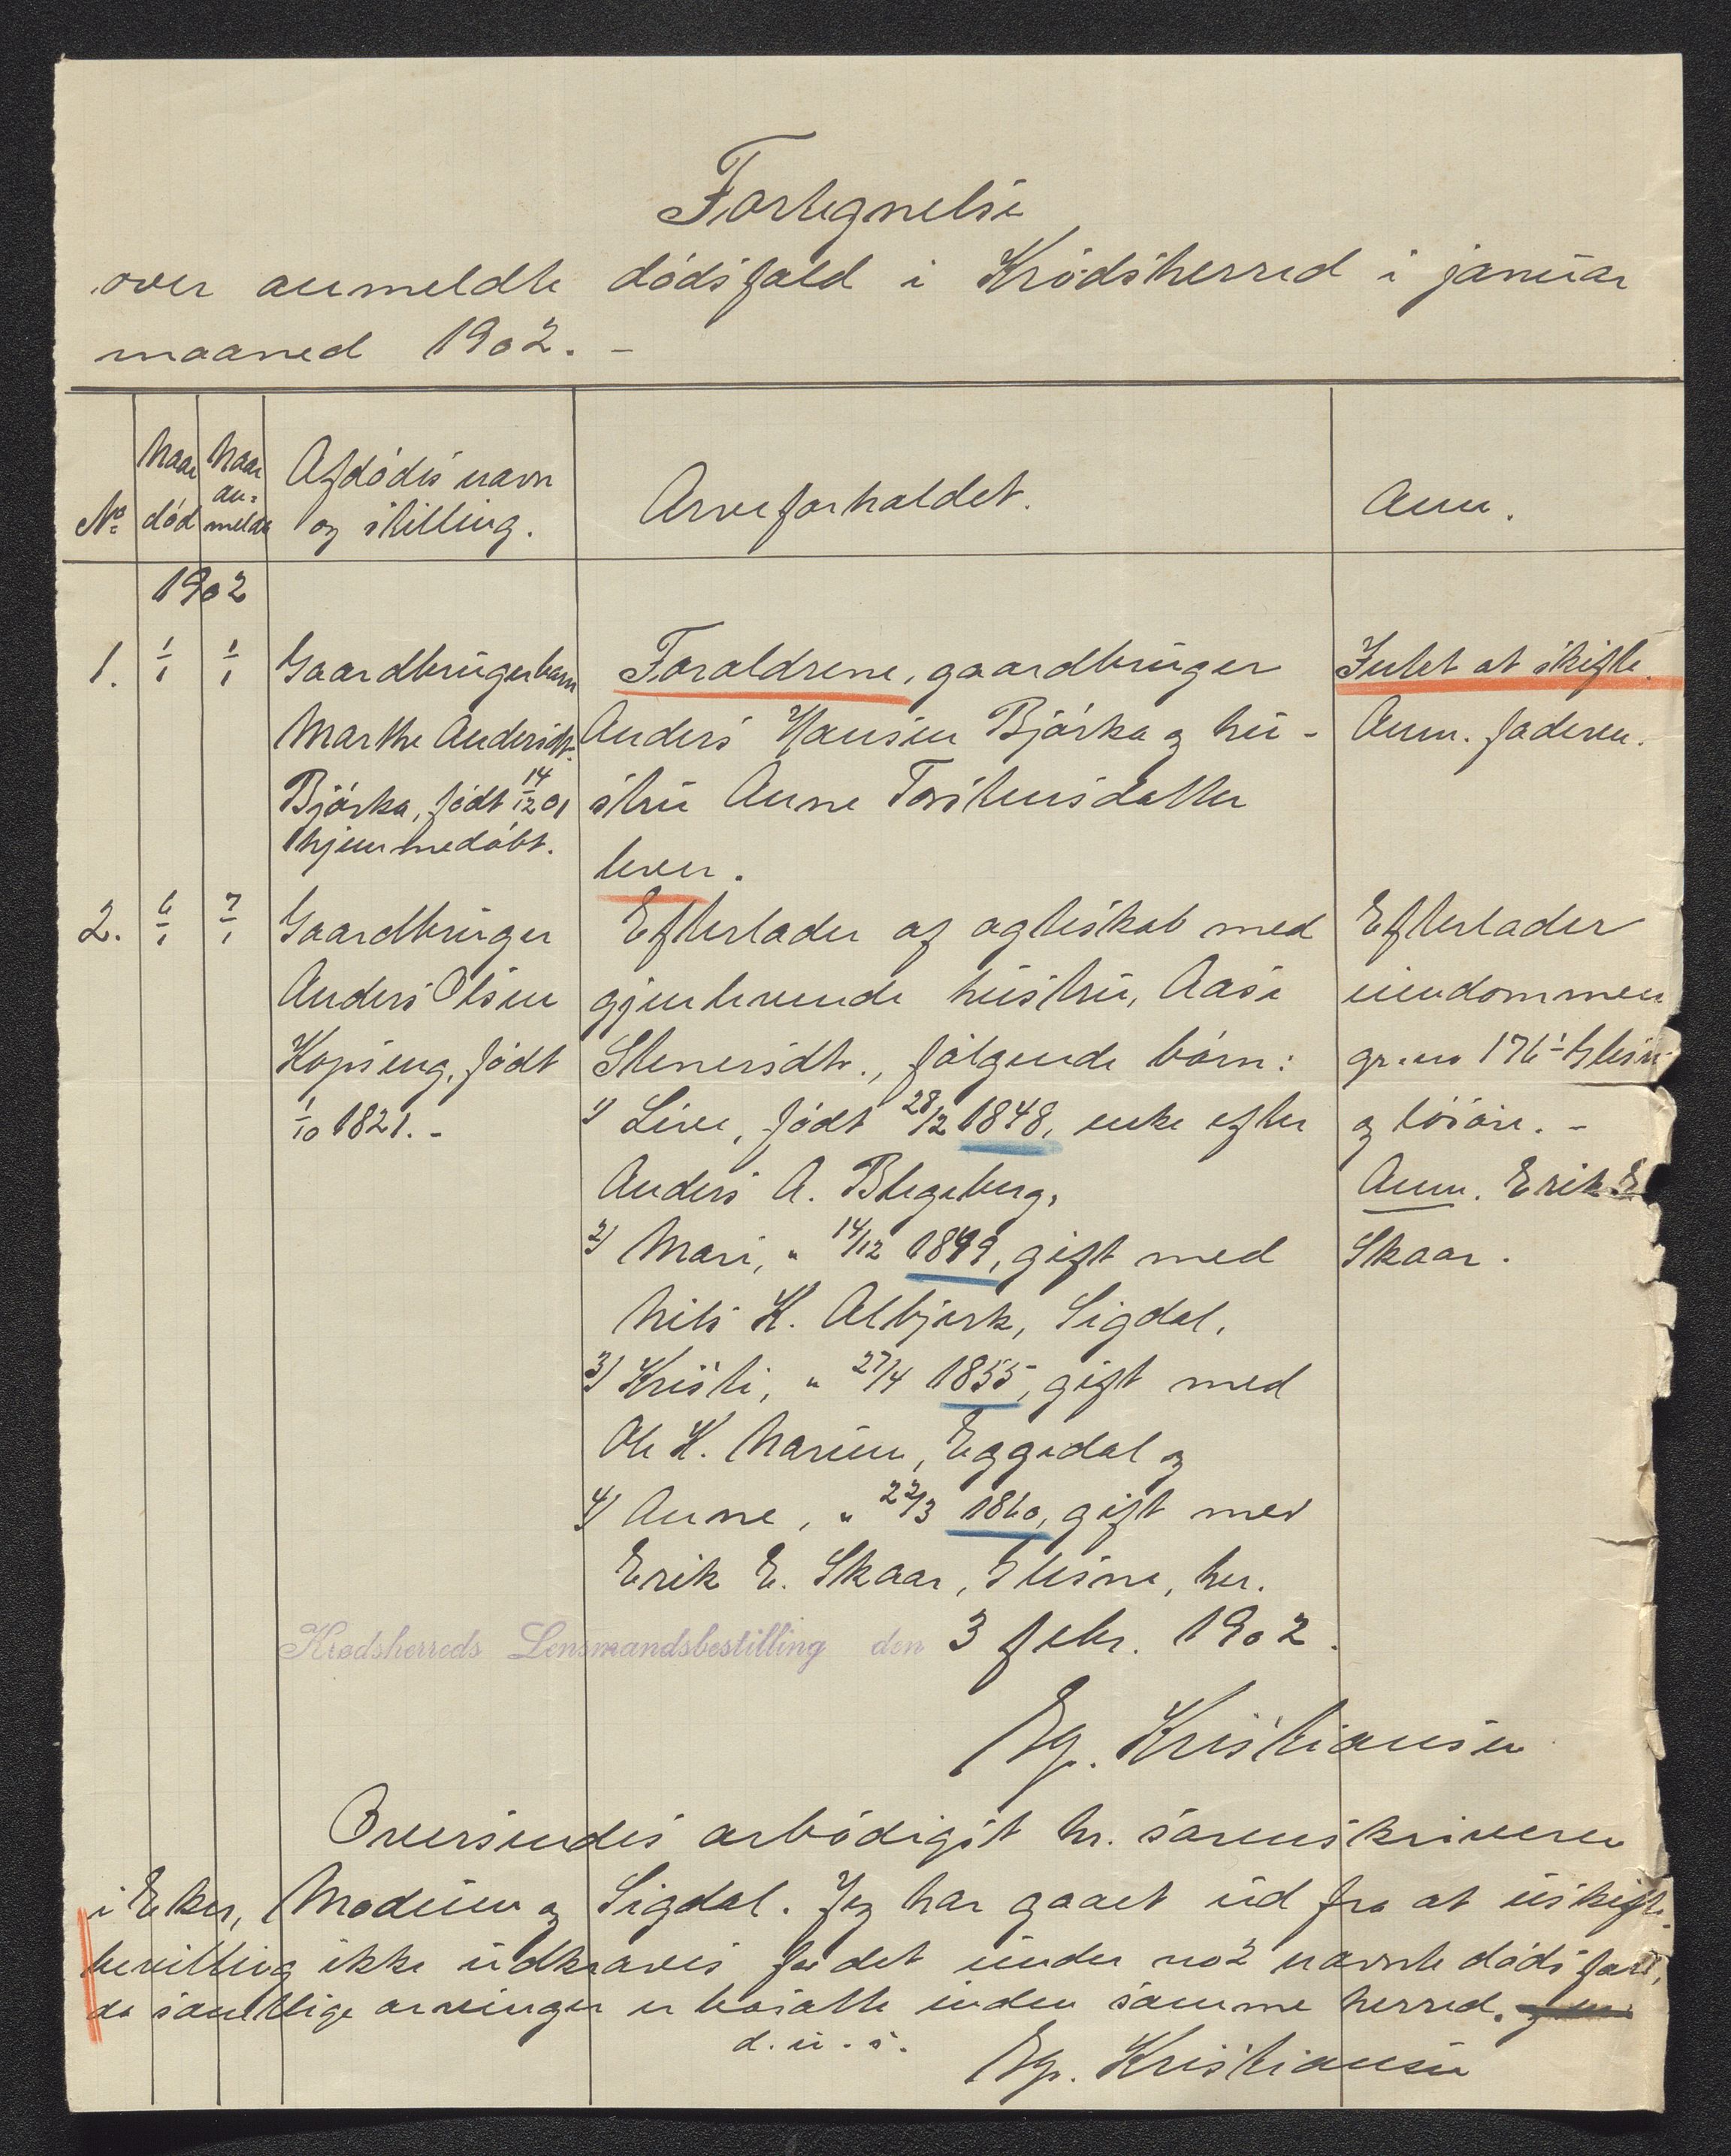 Fortegnelse
over anmeldte dødsfald i Krødsherred i januar
maaned 1902. -
No
Naar død
Naar anmeldt
Afdødes navn og stilling.
Arveforholdet.
Anm.
1902
1. 1/1 1/1
Gaardbrugerbarn
Marthe Andersdt.
Bjørka, født 14/12 01
hjemmedøbt.
Forældrene, gaardbruger
Anders Hansen Bjørka og hu-
stru Anne Torstensdatter
lever.
Intet at skifte.
Anm. faderen.
2. 6/1 7/1
Gaardbruger
Anders Olsen
Kopseng, født
1/10 1821. -
Efterlader af ægteskab med
gjenlevende hustru, Aase
Stenersdtr., følgende børn:
1) Live, født 28/2 1848, enke efter
Anders A. Blegeberg,
2) Mari, " 14/12 1849, gift med
Nils K. Albjerk, Sigdal,
3) Kristi, " 27/4 1855, gift med
Ole K. Narum, Eggedal og
4) Anne, " 22/3 1860, gift med
Erik E. Skaar, Glesne, her.
Efterlader
eiendommen
gr. no 176
og løsøre. -
Anm. Erik E
Skaar.
Krødsherreds Lensmandsbestilling den 3 febr. 1902.
Eg. Kristiansen
Oversendes ærbødigst hr. sorenskriveren
i Eker, Modum og Sigdal. Jeg har gaaet ud fra at uskifte-
bevilling ikke udkræves for det under no 2 nævnte dødsfald,
da samtlige arvinger er bosatte inden samme herred.
d. u. s.
Eg. Kristiansen